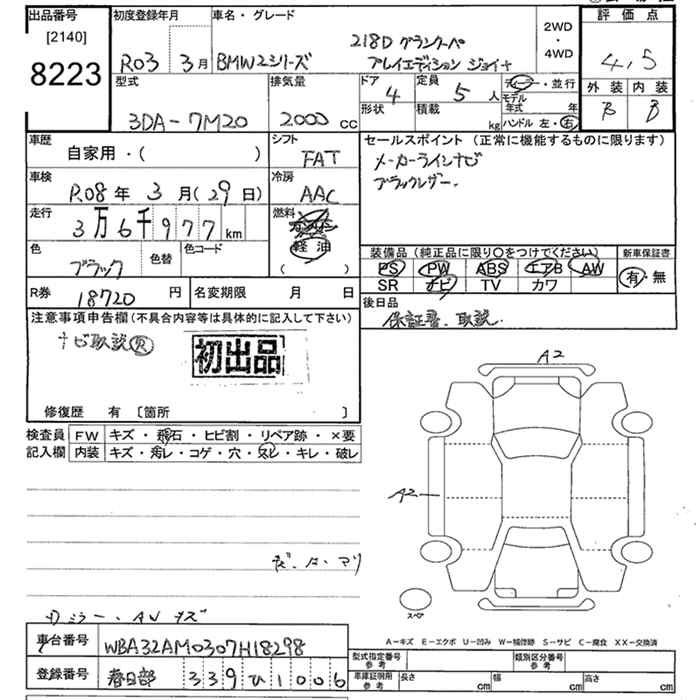 出品番号 初度登録年月 車名・グレード 2WD ・ 4WD 評価点
[2140]
8223
R03年 3月 BMW2シリーズ 218D グランクーペ
プレイエディション ジョイ+
4.5
外装 内装
B B
型式 排気量 ドア 定員 ディーラー・並行
3DA-7M20 2000cc 4 5人 モデル年式 年
形状 積載 kg ハンドル 左・右
車歴 シフト セールスポイント(正常に機能するものに限ります)
自家用・( ) FAT メーカーラインナビ
ブラックレザー.
車検 冷房
R08年 3月(29日) AAC
走行 燃料
3万6千977km 軽油
( )
色 色替 色コード
ブラック
装備品(純正品に限り○をつけてください) 新車保証書
PS PW ABS エアB AW 有・無
SR ナビ TV カワ
R券 18720円 名変期限 月 日
後日品
保証書、取説.
注意事項申告欄(不具合内容等は具体的に記入して下さい)
ナビ取説
初出品
修復歴 有 〔箇所 〕
検査員記入欄 FW キズ・飛石・ヒビ割・リペア跡・×要
内装 キズ・汚レ・コゲ・穴・スレ・キレ・破レ
A2
A2
スペア
ミラー・AWキズ
A-キズ E-エクボ U-凹み W-補修跡 S-サビ C-腐食 XX-交換済
車台番号 WBA32AM0307H18298
型式指定番号 参考 類別区分番号 参考
登録番号 春日部 339 ひ 1006
車庫証明用 参考 長さ cm 幅 cm 高さ cm